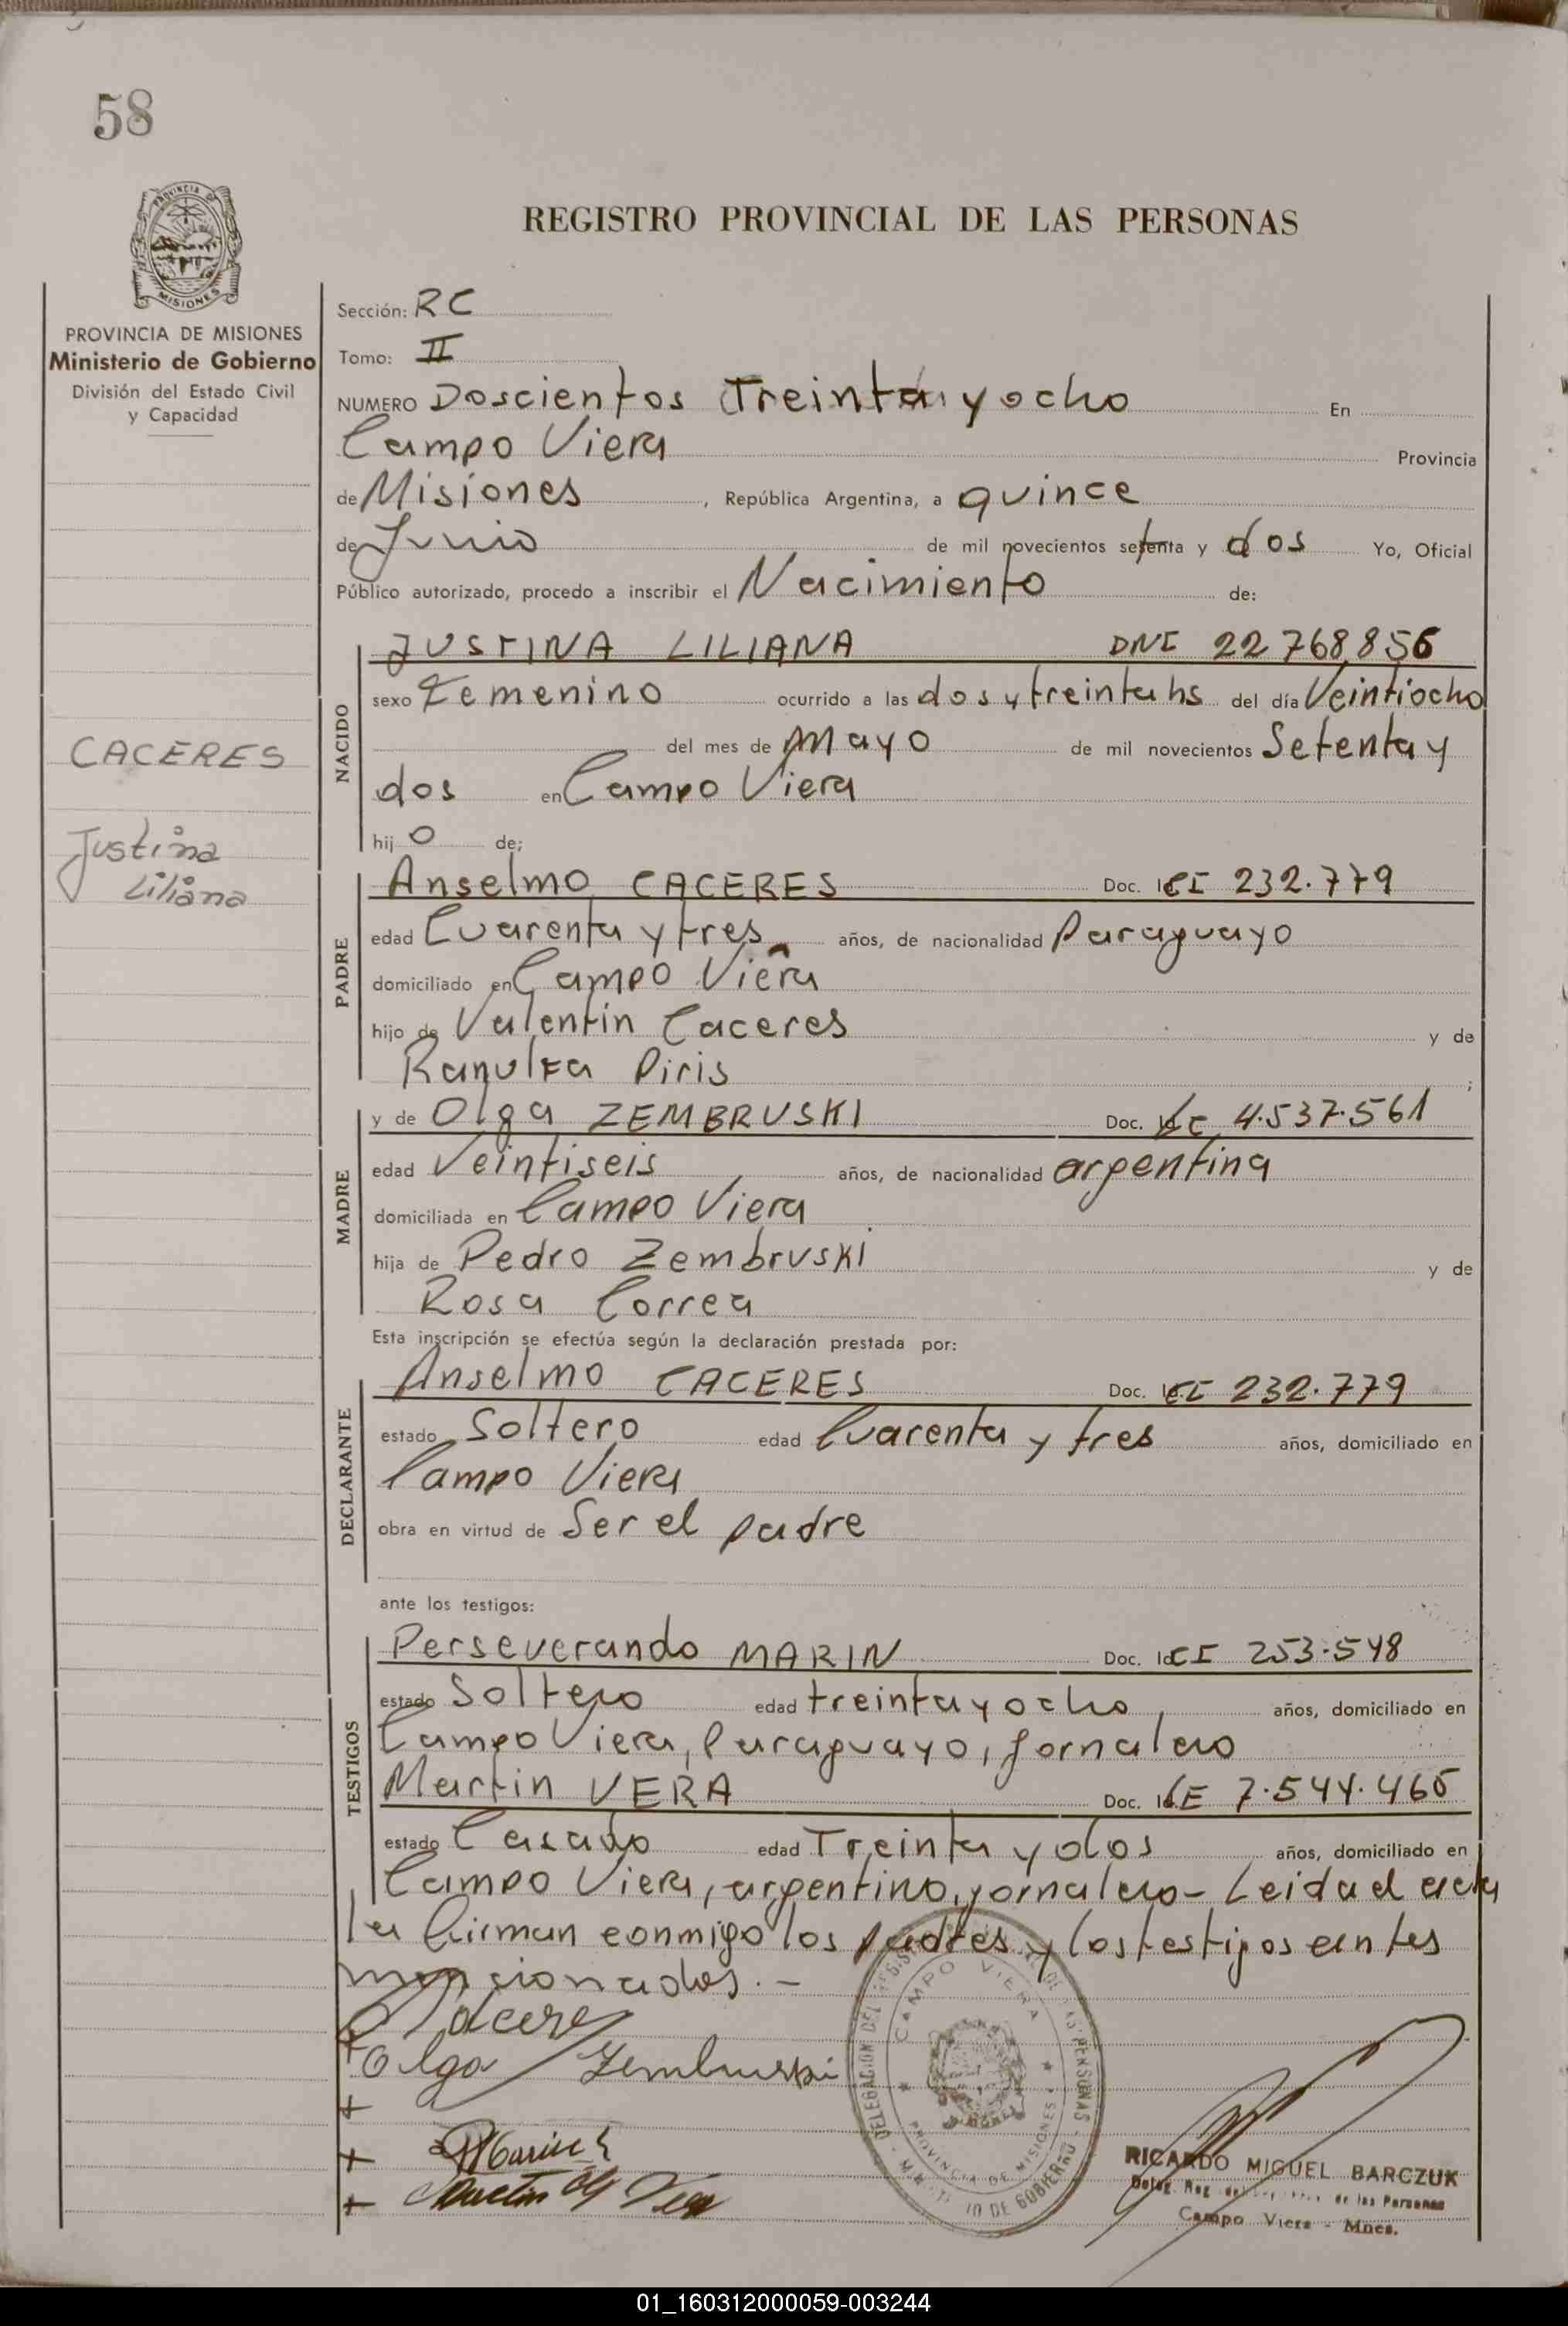 58
REGISTRO PROVINCIAL DE LAS PERSONAS
PROVINCIA DE
MISIONES
PROVINCIA DE MISIONES
Ministerio de Gobierno
División del Estado Civil
y Capacidad
CACERES
Justina
Liliana
Sección: RC
Tomo: II
NUMERO Doscientos Treinta y ocho En
Campo Viera Provincia
de Misiones, República Argentina, a quince
de Junio de mil novecientos setenta y dos Yo, Oficial
Público autorizado, procedo a inscribir el Nacimiento de:
NACIDO
JUSTINA LILIANA DNI 22 768,856
sexo Femenino ocurrido a las dos y treinta hs del día Veintiocho
del mes de Mayo de mil novecientos Setenta y
dos en Campo Viera
hijo de;
PADRE
Anselmo CACERES Doc. CI 232.779
edad Cuarenta y tres años, de nacionalidad Paraguayo
domiciliado en Campo Viera
hijo de Valentin Caceres y de
Ranulfa Piris;
MADRE
y de Olga ZEMBRUSKI Doc. LC 4.537.561
edad Veintiseis años, de nacionalidad argentina
domiciliada en Campo Viera
hija de Pedro Zembruski y de
Rosa Correa
Esta inscripción se efectúa según la declaración prestada por:
DECLARANTE
Anselmo CACERES Doc. CI 232.779
estado Soltero edad Cuarenta y tres años, domiciliado en
Campo Viera
obra en virtud de Ser el padre
ante los testigos:
TESTIGOS
Perseverando MARIN Doc. Id. CI 253.548
estado Soltero edad treinta y ocho, años, domiciliado en
Campo Viera, Paraguayo, Jornalero
Martin VERA Doc. Id. LE 7.544.465
estado Casado edad Treinta y dos años, domiciliado en
Campo Viera, argentino, jornalero- Leida el acta
la firman conmigo los padres y los testigos antes
mencionados.-
Caceres
Olga Zembruski
Marin
Martin Vera
DELEGACION DEL REGISTRO PROVINCIAL DE LAS PERSONAS
CAMPO VIERA
PROVINCIA DE MISIONES
MINISTERIO DE GOBIERNO
RICARDO MIGUEL BARCZUK
Deleg. Reg. de las Personas
Campo Viera - Mnes.
01_160312000059-003244